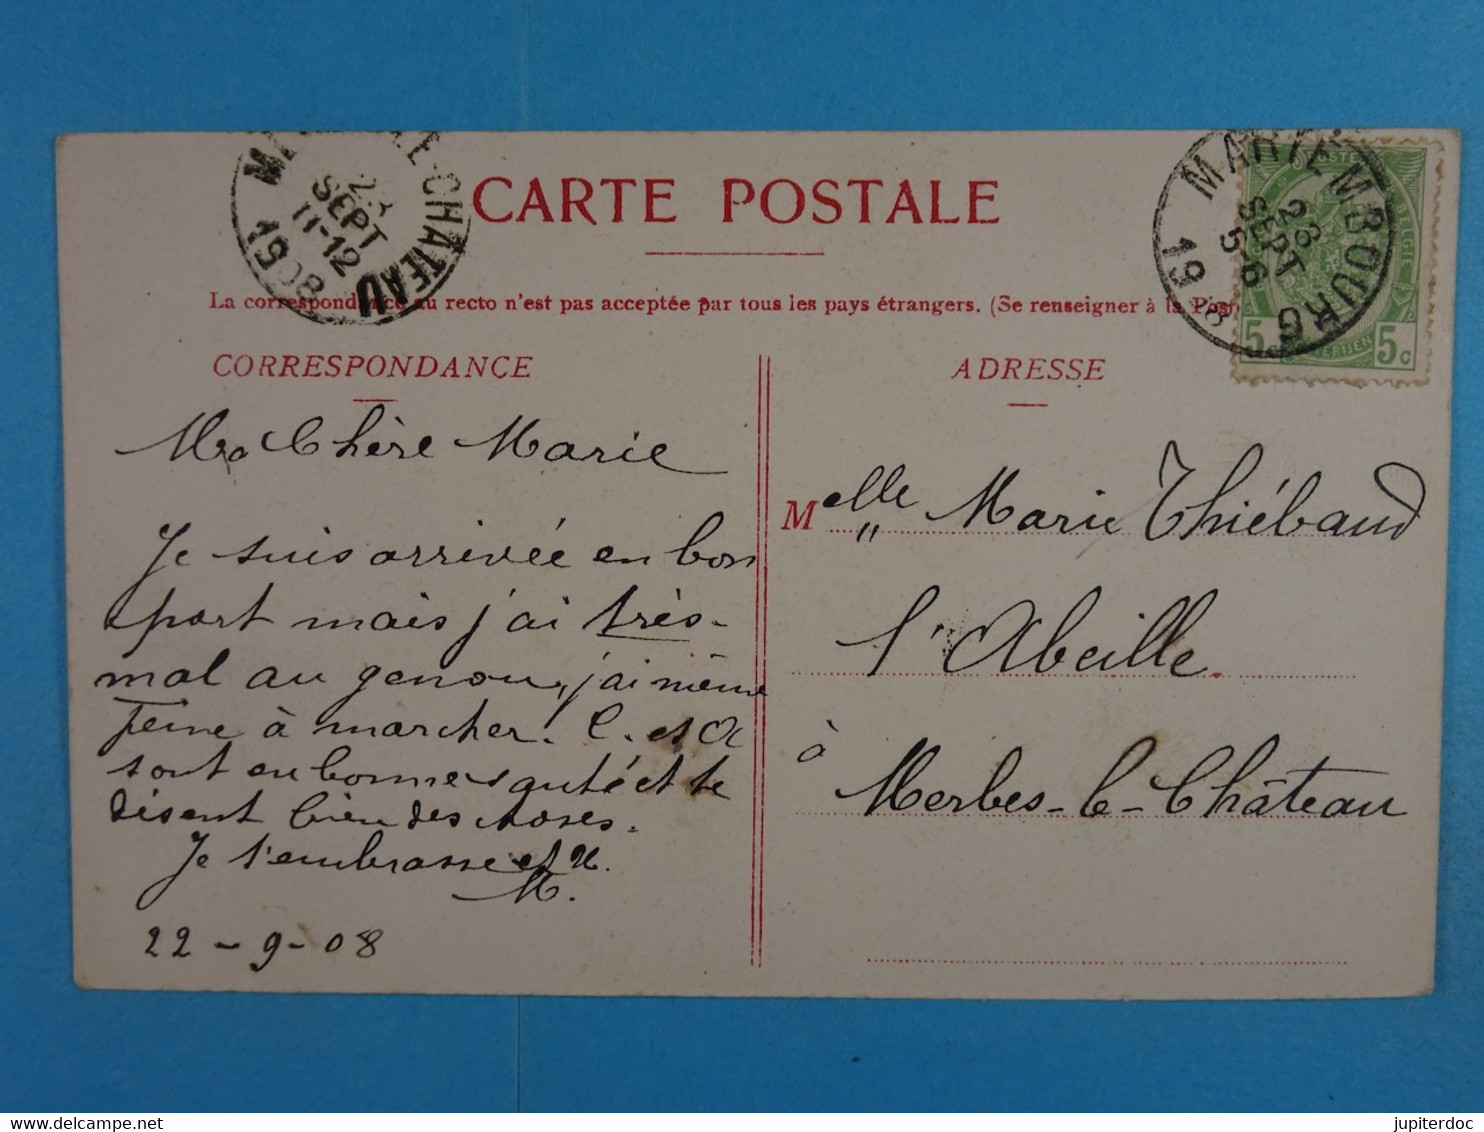 CARTE POSTALE
La correspondance au recto n'est pas acceptée par tous les pays étrangers. (Se renseigner à la
CHATEAU
SEPT
11-12
1908
MARIEMBOURG
23
SEPT
5-6
19
5 c
5 c
CORRESPONDANCE
Ma Chère Marie
Je suis arrivée en bon
port mais j'ai très-
mal au genou, j'ai même
peine à marcher. C. et
sont en bonne santé et te
disent bien des choses.
Je t'embrasse et
M.
22-9-08
ADRESSE
Melle Marie Thiébaud
l'Abeille
à Merbes-le-Château
jupiterdoc